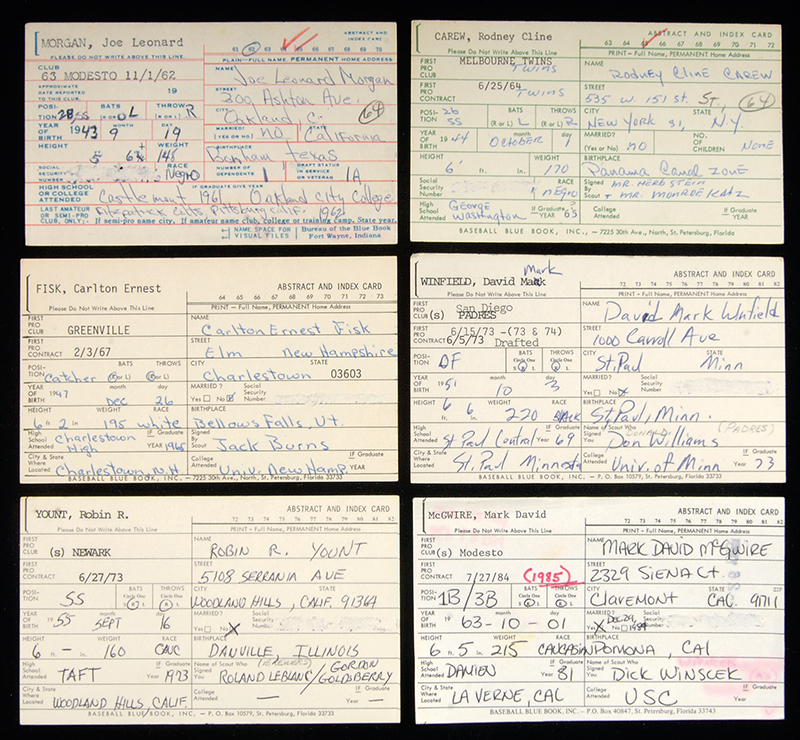 MORGAN, Joe Leonard
ABSTRACT AND INDEX CARD
61 62 63 64 65 66 67 68 69 70
PLEASE DO NOT WRITE ABOVE THIS LINE.
PLAIN—FULL NAME, PERMANENT HOME ADDRESS
CLUB
63 MODESTO 11/1/62
NAME
Joe Leonard Morgan
APPROXIMATE DATE REPORTED TO THIS CLUB:
19
STREET
300 Ashton Ave.
64
POSITION 2B/SS
BATS (R OR L) L
THROWS (R OR L) R
Oakland,
YEAR OF BIRTH 1943 9 19
MARRIED? (YES OR NO) no
STATE
California
HEIGHT 5 6½
WEIGHT 148
BIRTHPLACE
Bonham Texas
SOCIAL SECURITY NUMBER
RACE Negro
NUMBER OF DEPENDENTS 1
DRAFT STATUS IN SERVICE OR VETERAN 1A
HIGH SCHOOL OR COLLEGE ATTENDED
IF GRADUATE GIVE YEAR
Castlemont 1961 Oakland City College
LAST AMATEUR OR SEMI-PRO CLUB, ONLY:
Fitzpatrick Colts Pittsburg Calif. 1962
If semi-pro name city. If amateur name club, college or training camp. State year.
NAME SPACE FOR VISUAL FILES
Bureau of the Blue Book
Fort Wayne, Indiana
CAREW, Rodney Cline
ABSTRACT AND INDEX CARD
63 64 65 66 67 68 69 70 71 72
Please Do Not Write Above This Line
PRINT - Full Name, PERMANENT Home Address
FIRST PRO CLUB
MELBOURNE TWINS
Twins
NAME
Rodney Cline CAREW
FIRST PRO CONTRACT
6/25/64
Twins
STREET
535 W. 151 st. St.,
64
POSITION 2B SS
BATS (R or L) L
THROWS (R or L) R
CITY
New York 31, NY
STATE
YEAR OF BIRTH 1944
month October
day 1
MARRIED? (Yes or No) no
NO. OF CHILDREN None
HEIGHT 6'
WEIGHT 170
BIRTHPLACE
Panama Canal Zone
Social Security Number
RACE negro
Signed By Scout
MR. HERB STEIN
+ MR. MONROE KATZ
High School Attended
George Washington
If Graduate Year 65
College Attended
If Graduate Year
BASEBALL BLUE BOOK, INC., — 7225 30th Ave., North, St. Petersburg, Florida
FISK, Carlton Ernest
ABSTRACT AND INDEX CARD
64 65 66 67 68 69 70 71 72 73
Please Do Not Write Above This Line
PRINT - Full Name, PERMANENT Home Address
FIRST PRO CLUB
GREENVILLE
NAME
Carlton Ernest Fisk
FIRST PRO CONTRACT
2/3/67
STREET
Elm New Hampshire
POSITION Catcher
BATS R or L
THROWS R or L
CITY
Charlestown
STATE
03603
YEAR OF BIRTH 1947
month Dec
day 26
MARRIED? Yes No
Social Security Number
HEIGHT 6 ft. 2 in.
WEIGHT 195
RACE white
BIRTHPLACE
Bellows Falls, Vt.
High School Attended
Charlestown High
IF Graduate Year 1965
Signed By Scout
Jack Burns
City & State Where Located
Charlestown, N.H
College Attended
Univ. New Hamp.
IF Graduate YEAR
BASEBALL BLUE BOOK, INC., — 7225 30th Ave., North, St. Petersburg, Florida 33733
Mark
WINFIELD, David Mark
ABSTRACT AND INDEX CARD
72 73 74 75 76 77 78 79 80 81
Please Do Not Write Above This Line
PRINT - Full Name, PERMANENT Home Address
FIRST PRO CLUB
San Diego
(s) PADRES
NAME
David Mark Winfield
FIRST PRO CONTRACT
6/15/73 -(73 & 74)
6/5/73 Drafted
STREET
1000 Carroll Ave
POSITION OF
BATS Circle One R L
THROWS Circle One R L
CITY
St. Paul
STATE
Minn
YEAR OF BIRTH 1951
month 10
day 3
MARRIED? Yes No
Social Security Number
HEIGHT 6 ft. 6 in.
WEIGHT 220
RACE Black
BIRTHPLACE
St. Paul, Minn.
(PADRES)
High School Attended
St Paul Central
IF Graduate Year 69
Name of Scout Who Signed You
DONALD
Don Williams
City & State Where Located
St. Paul Minnesota
College Attended
Univ. of Minn
IF Graduate Year 73
BASEBALL BLUE BOOK, INC. — P. O. Box 10579, St. Petersburg, Florida 33733
YOUNT, Robin R.
ABSTRACT AND INDEX CARD
72 73 74 75 76 77 78 79 80 81 82
Please Do Not Write Above This Line
PRINT - Full Name, PERMANENT Home Address
FIRST PRO CLUB
(s) NEWARK
NAME
ROBIN R. YOUNT
FIRST PRO CONTRACT
6/27/73
STREET
5108 SERRANIA AVE
POSITION SS
BATS Circle One R L
THROWS Circle One R L
CITY
WOODLAND HILLS, CALIF. 91364
STATE
YEAR OF BIRTH 1955
month SEPT
day 16
MARRIED? Yes No
Social Security Number
HEIGHT 6 ft. — in.
WEIGHT 160
RACE CAUC
BIRTHPLACE
DANVILLE, ILLINOIS
High School Attended
TAFT
IF Graduate Year 1973
Name of Scout Who Signed You
(BREWERS)
ROLAND LEBLANC/GORDON GOLDSBERRY
City & State Where Located
WOODLAND HILLS, CALIF.
College Attended —
IF Graduate Year —
BASEBALL BLUE BOOK, INC. — P. O. Box 10579, St. Petersburg, Florida 33733
McGWIRE, Mark David
ABSTRACT AND INDEX CARD
72 73 74 75 76 77 78 79 80 81 82
Please Do Not Write Above This Line
PRINT - Full Name, PERMANENT Home Address
FIRST PRO CLUB
(s) Modesto
NAME
MARK DAVID McGWIRE
FIRST PRO CONTRACT
7/27/84 (1985)
STREET
2329 SIENA Ct.
POSITION 1B/3B
BATS Circle One R L
THROWS Circle One R L
CITY
CLAREMONT
STATE
CAL.
ZIP
91711
YEAR OF BIRTH 19 63-10-01
month
day
MARRIED? Yes No
Dec 29, 1984
Social Security Number
HEIGHT 6 ft. 5 in.
WEIGHT 215
RACE CAUCASIAN
BIRTHPLACE
POMONA, CAl
High School Attended
DAMIEN
IF Graduate Year 81
Name of Scout Who Signed You
DICK WINSCEK
City & State Where Located
LA VERNE, CAL
College Attended
USC
IF Graduate Year —
BASEBALL BLUE BOOK, INC. — P.O. Box 40847, St. Petersburg, Florida 33743